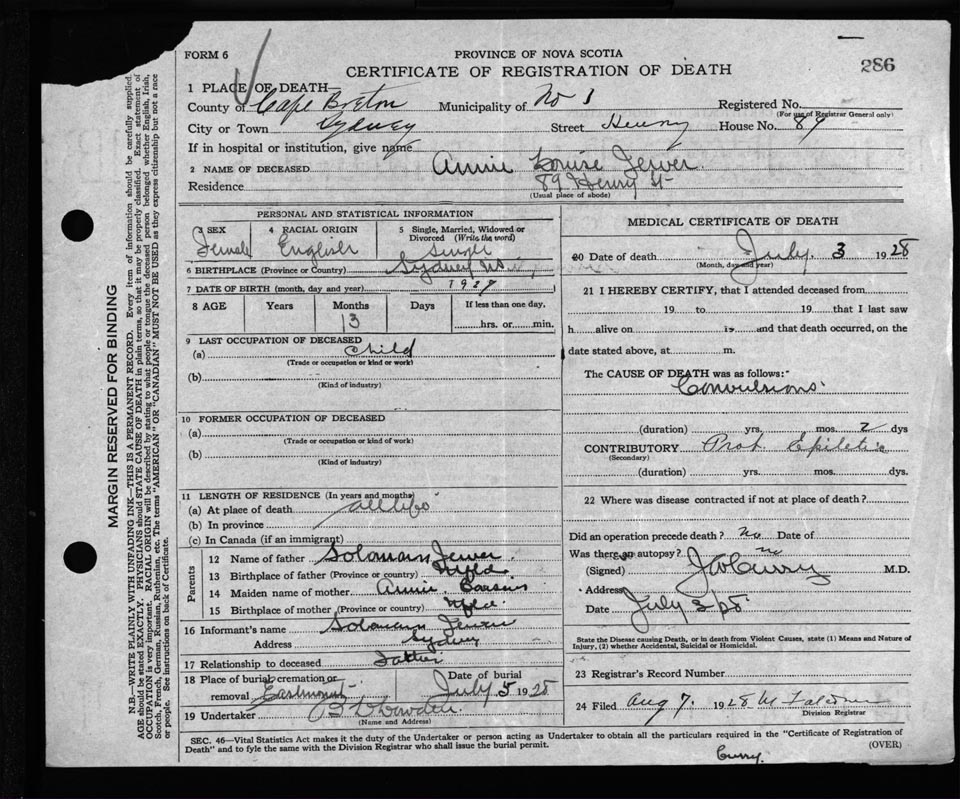 FORM 6
PROVINCE OF NOVA SCOTIA
CERTIFICATE OF REGISTRATION OF DEATH
286
1 PLACE OF DEATH—
County of Cape Breton Municipality of No 1 Registered No.
(For use of Registrar General only)
City or Town Sydney Street Henry House No. 89
If in hospital or institution, give name
2 NAME OF DECEASED Annie Louise Jewer
Residence 89 Henry St
(Usual place of abode)
PERSONAL AND STATISTICAL INFORMATION
3 SEX Female
4 RACIAL ORIGIN English
5 Single, Married, Widowed or Divorced (Write the word) Single
6 BIRTHPLACE (Province or Country) Sydney N.S.
7 DATE OF BIRTH (month, day and year) 1927
8 AGE Years Months Days If less than one day,
13 hrs. or min.
9 LAST OCCUPATION OF DECEASED
(a) Child
(Trade or occupation or kind or work)
(b)
(Kind of industry)
10 FORMER OCCUPATION OF DECEASED
(a)
(Trade or occupation or kind of work)
(b)
(Kind of industry)
11 LENGTH OF RESIDENCE (In years and months)
(a) At place of death all life
(b) In province
(c) In Canada (if an immigrant)
Parents
12 Name of father Solomann Jewer
13 Birthplace of father (Province or country) Nfld
14 Maiden name of mother Annie
15 Birthplace of mother (Province or country) Nfld
16 Informant's name Solomann Jewer
Address Sydney
17 Relationship to deceased Father
18 Place of burial, cremation or removal Eastmount Date of burial July 5 1928
19 Undertaker
(Name and Address)
MEDICAL CERTIFICATE OF DEATH
20 Date of death July. 3 1928
(Month, day and year)
21 I HEREBY CERTIFY, that I attended deceased from
19 to 19 that I last saw
h alive on 19 and that death occurred, on the
date stated above, at m.
The CAUSE OF DEATH was as follows:
Convulsions
(duration) yrs. mos. 2 dys
CONTRIBUTORY Prob Epileptic
(Secondary)
(duration) yrs. mos. dys.
22 Where was disease contracted if not at place of death?
Did an operation precede death? No Date of
Was there an autopsy? no
(Signed) Curry M.D.
Address
Date July 3/28
State the Disease causing Death, or in death from Violent Causes, state (1) Means and Nature of
Injury, (2) whether Accidental, Suicidal or Homicidal.
23 Registrar's Record Number
24 Filed Aug 7. 1928
Division Registrar
SEC. 46—Vital Statistics Act makes it the duty of the Undertaker or person acting as Undertaker to obtain all the particulars required in the "Certificate of Registration of
Death" and to fyle the same with the Division Registrar who shall issue the burial permit.
(OVER)
Curry.
MARGIN RESERVED FOR BINDING
N.B.—WRITE PLAINLY WITH UNFADING INK—THIS IS A PERMANENT RECORD. Every item of information should be carefully supplied.
AGE should be stated EXACTLY. PHYSICIANS should STATE CAUSE OF DEATH in plain terms, so that it may be properly classified. Exact statement of
OCCUPATION is very important. RACIAL ORIGIN will be described by stating to what people or tongue the deceased person belonged whether English, Irish,
Scotch, French, German, Russian, Ruthenian, etc. The terms "AMERICAN" OR "CANADIAN" MUST NOT BE USED as they express citizenship but not a race
or people. See instructions on back of Certificate.